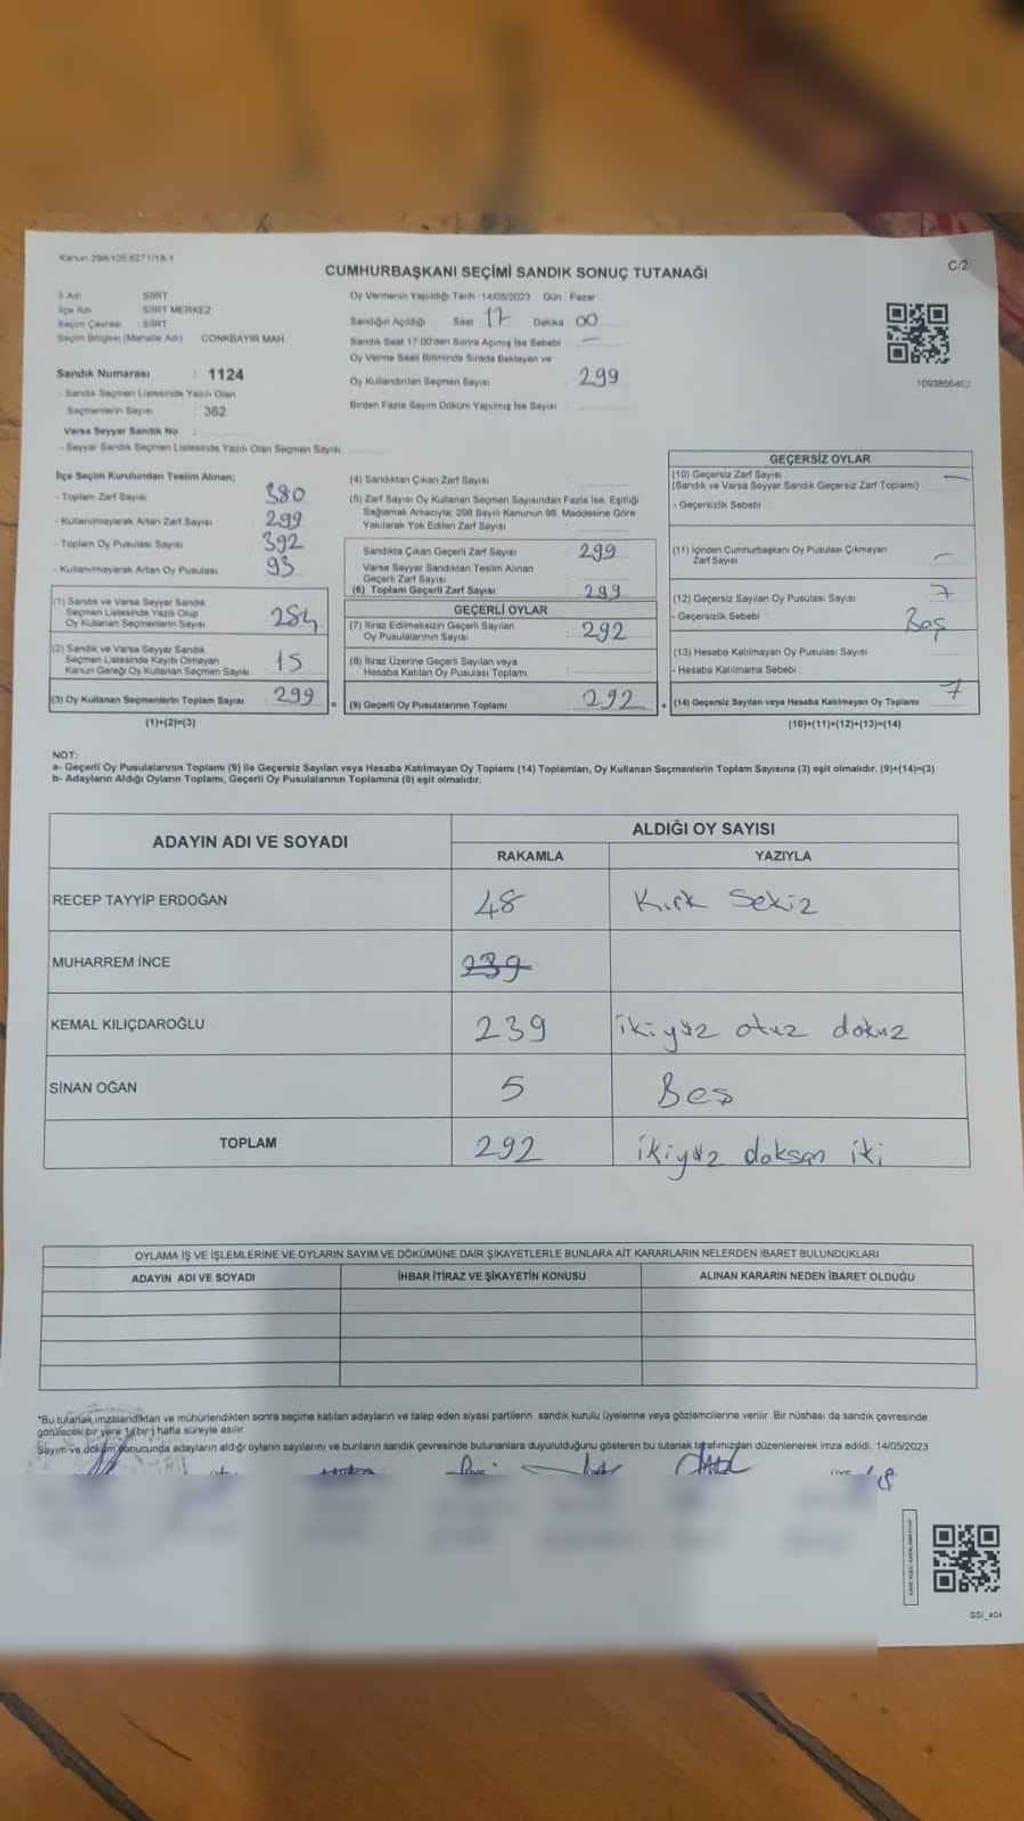 C/2
CUMHURBAŞKANI SEÇİMİ SANDIK SONUÇ TUTANAĞI
İl Adı : SİİRT
İlçe Adı : SİİRT MERKEZ
Seçim Çevresi : SİİRT
Seçim Bölgesi (Mahalle Adı) : CONKBAYIR MAH.
Sandık Numarası : 1124
- Sandık Seçmen Listesinde Yazılı Olan
Seçmenlerin Sayısı : 362
Varsa Seyyar Sandık No :
- Seyyar Sandık Seçmen Listesinde Yazılı Olan Seçmen Sayısı
Oy Vermenin Yapıldığı Tarih :14/05/2023 Gün : Pazar
Sandığın Açıldığı Saat 17 Dakika 00
Sandık Saat 17.00'den Sonra Açılmış İse Sebebi —
Oy Verme Saati Bitiminde Sırada Bekleyen ve
Oy Kullandırılan Seçmen Sayısı 299
Birden Fazla Sayım Döküm Yapılmış İse Sayısı
İlçe Seçim Kurulundan Teslim Alınan;
- Toplam Zarf Sayısı 380
- Kullanılmayarak Artan Zarf Sayısı 299
- Toplam Oy Pusulası Sayısı 392
- Kullanılmayarak Artan Oy Pusulası 93
(1) Sandık ve Varsa Seyyar Sandık
Seçmen Listesinde Yazılı Olup
Oy Kullanan Seçmenlerin Sayısı 284
(2) Sandık ve Varsa Seyyar Sandık
Seçmen Listesinde Kayıtlı Olmayan
Kanun Gereği Oy Kullanan Seçmen Sayısı 15
(3) Oy Kullanan Seçmenlerin Toplam Sayısı 299
(1)+(2)=(3)
(4) Sandıktan Çıkan Zarf Sayısı
(5) Zarf Sayısı Oy Kullanan Seçmen Sayısından Fazla İse, Eşitliği
Sağlamak Amacıyla, 298 Sayılı Kanunun 98. Maddesine Göre
Yakılarak Yok Edilen Zarf Sayısı
Sandıkta Çıkan Geçerli Zarf Sayısı 299
Varsa Seyyar Sandıktan Teslim Alınan
Geçerli Zarf Sayısı
(6) Toplam Geçerli Zarf Sayısı 299
GEÇERLİ OYLAR
(7) İtiraz Edilmeksizin Geçerli Sayılan
Oy Pusulalarının Sayısı 292
(8) İtiraz Üzerine Geçerli Sayılan veya
Hesaba Katılan Oy Pusulası Toplamı
= (9) Geçerli Oy Pusulalarının Toplamı 292
GEÇERSİZ OYLAR
(10) Geçersiz Zarf Sayısı —
(Sandık ve Varsa Seyyar Sandık Geçersiz Zarf Toplamı)
- Geçersizlik Sebebi
(11) İçinden Cumhurbaşkanı Oy Pusulası Çıkmayan
Zarf Sayısı —
(12) Geçersiz Sayılan Oy Pusulası Sayısı 7
- Geçersizlik Sebebi Boş
(13) Hesaba Katılmayan Oy Pusulası Sayısı
- Hesaba Katılmama Sebebi :
+ (14) Geçersiz Sayılan veya Hesaba Katılmayan Oy Toplamı 7
(10)+(11)+(12)+(13)=(14)
NOT:
a- Geçerli Oy Pusulalarının Toplamı (9) ile Geçersiz Sayılan veya Hesaba Katılmayan Oy Toplamı (14) Toplamları, Oy Kullanan Seçmenlerin Toplam Sayısına (3) eşit olmalıdır. (9)+(14)=(3)
b- Adayların Aldığı Oyların Toplamı, Geçerli Oy Pusulalarının Toplamına (9) eşit olmalıdır.
ADAYIN ADI VE SOYADI ALDIĞI OY SAYISI
RAKAMLA YAZIYLA
RECEP TAYYİP ERDOĞAN 48 Kırk Sekiz
MUHARREM İNCE 239
KEMAL KILIÇDAROĞLU 239 ikiyüz otuz dokuz
SİNAN OĞAN 5 Beş
TOPLAM 292 ikiyüz doksan iki
OYLAMA İŞ VE İŞLEMLERİNE VE OYLARIN SAYIM VE DÖKÜMÜNE DAİR ŞİKAYETLERLE BUNLARA AİT KARARLARIN NELERDEN İBARET BULUNDUKLARI
ADAYIN ADI VE SOYADI İHBAR İTİRAZ VE ŞİKAYETİN KONUSU ALINAN KARARIN NEDEN İBARET OLDUĞU
*Bu tutanak imzalandıktan ve mühürlendikten sonra seçime katılan adayların ve talep eden siyasi partilerin sandık kurulu üyelerine veya gözlemcilerine verilir. Bir nüshası da sandık çevresinde
görülecek bir yere 1(bir) hafta süreyle asılır.
Sayım ve döküm sonucunda adayların aldığı oyların sayılarını ve bunların sandık çevresinde bulunanlara duyurulduğunu gösteren bu tutanak tarafımızdan düzenlenerek imza edildi. 14/05/2023
SSI_404